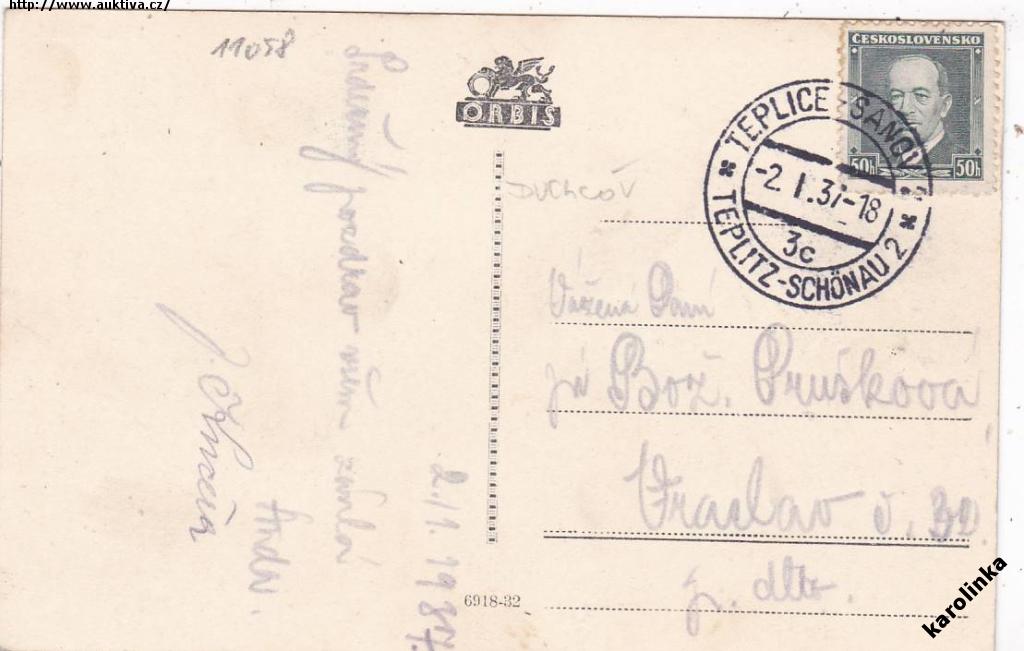 http://www.auktiva.cz/
11058
ORBIS
ČESKOSLOVENSKO
50h 50h
TEPLICE-ŠANOV 2
-2. I. 37-18
3c
TEPLITZ-SCHÖNAU 2
DUCHCOV
Vážená Paní
Bož. Prušková
Vraclav č. 32
Srdečný pozdrav všem zasílá
J.
2./1. 1937.
6918-32
karolinka